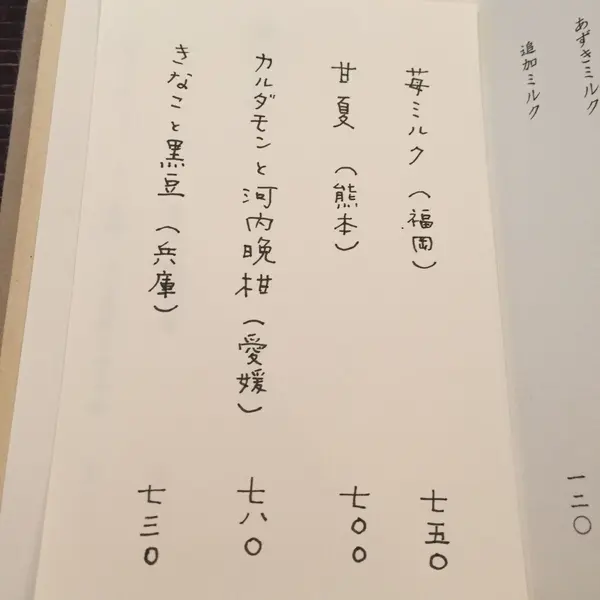 あずきミルク
追加ミルク
一二〇
苺ミルク（福岡） 七五〇
甘夏（熊本） 七〇〇
カルダモンと河内晩柑（愛媛） 七八〇
きなこと黒豆（兵庫） 七三〇